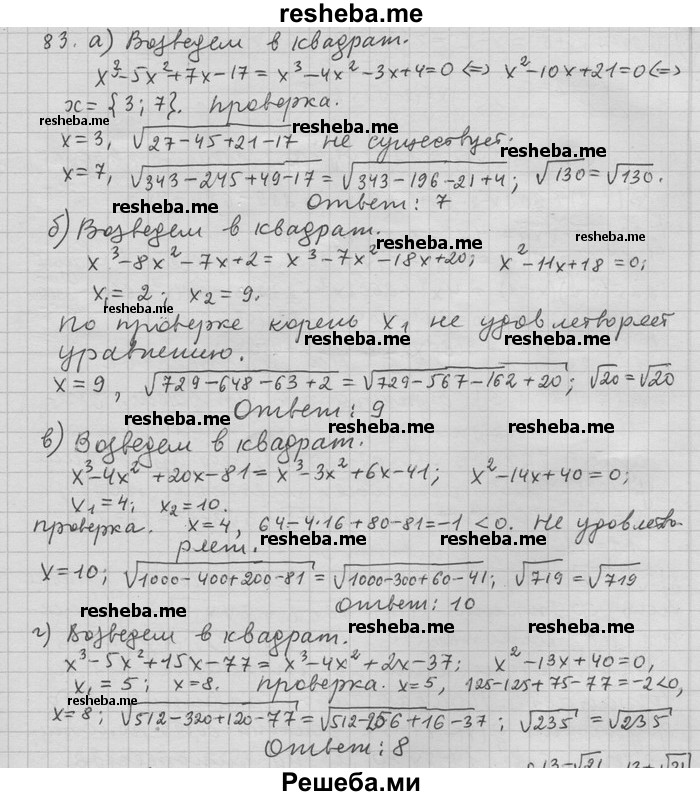 resheba.me
83. а) Возведем в квадрат.
x³-5x²+7x-17 = x³-4x²-3x+4=0 <=> x²-10x+21=0 <=>
x = {3; 7}. проверка.
resheba.me resheba.me
x=3, √27-45+21-17 не существует.
x=7, √343-245+49-17 = √343-196-21+4; √130=√130.
resheba.me resheba.me
Ответ: 7
б) Возведем в квадрат.
resheba.me
x³-8x²-7x+2 = x³-7x²-18x+20; x²-11x+18=0;
resheba.me
x₁= 2; x₂=9.
resheba.me
По проверке корень x₁ не удовлетворяет
resheba.me
уравнению.
x=9, √729-648-63+2 = √729-567-162+20; √20=√20
Ответ: 9
resheba.me resheba.me
в) Возведем в квадрат.
x³-4x²+20x-81= x³-3x²+6x-41; x²-14x+40=0;
x₁=4; x₂=10.
проверка. x=4, 64-4·16+80-81=-1<0. Не удовлетво-
ряет.
resheba.me resheba.me
x=10; √1000-400+200-81 = √1000-300+60-41; √719=√719
resheba.me
Ответ: 10
resheba.me
г) Возведем в квадрат.
x³-5x²+15x-77= x³-4x²+2x-37; x²-13x+40=0,
x₁=5; x=8. проверка. x=5, 125-125+75-77=-2<0,
resheba.me resheba.me
x=8; √512-320+120-77 = √512-256+16-37; √235 = √235
Ответ: 8
Решеба.ми